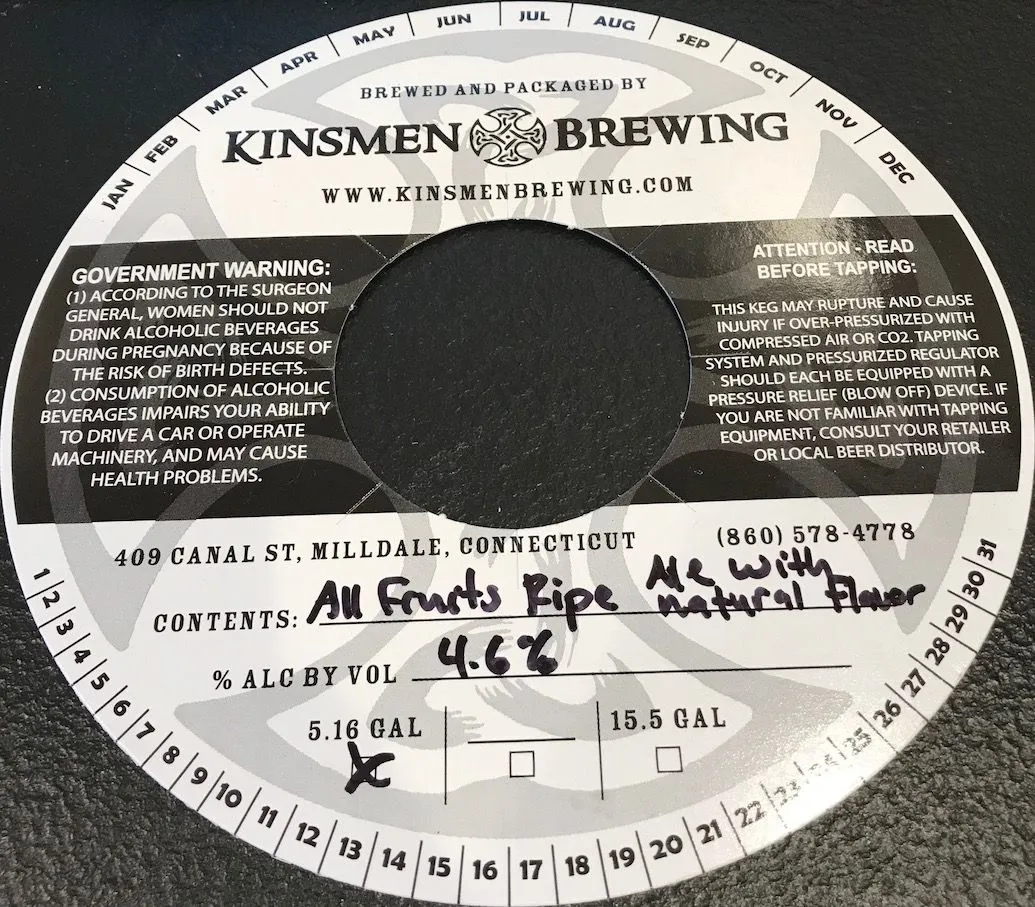 JAN FEB MAR APR MAY JUN JUL AUG SEP OCT NOV DEC
BREWED AND PACKAGED BY
KINSMEN BREWING
WWW.KINSMENBREWING.COM
GOVERNMENT WARNING:
(1) ACCORDING TO THE SURGEON
GENERAL, WOMEN SHOULD NOT
DRINK ALCOHOLIC BEVERAGES
DURING PREGNANCY BECAUSE OF
THE RISK OF BIRTH DEFECTS.
(2) CONSUMPTION OF ALCOHOLIC
BEVERAGES IMPAIRS YOUR ABILITY
TO DRIVE A CAR OR OPERATE
MACHINERY, AND MAY CAUSE
HEALTH PROBLEMS.
ATTENTION - READ
BEFORE TAPPING:
THIS KEG MAY RUPTURE AND CAUSE
INJURY IF OVER-PRESSURIZED WITH
COMPRESSED AIR OR CO2. TAPPING
SYSTEM AND PRESSURIZED REGULATOR
SHOULD EACH BE EQUIPPED WITH A
PRESSURE RELIEF (BLOW OFF) DEVICE. IF
YOU ARE NOT FAMILIAR WITH TAPPING
EQUIPMENT, CONSULT YOUR RETAILER
OR LOCAL BEER DISTRIBUTOR.
409 CANAL ST, MILLDALE, CONNECTICUT (860) 578-4778
CONTENTS: All Fruits Ripe Ale with
natural Flavor
% ALC BY VOL 4.6%
5.16 GAL 15.5 GAL
X
1 2 3 4 5 6 7 8 9 10 11 12 13 14 15 16 17 18 19 20 21 22 23 24 25 26 27 28 29 30 31